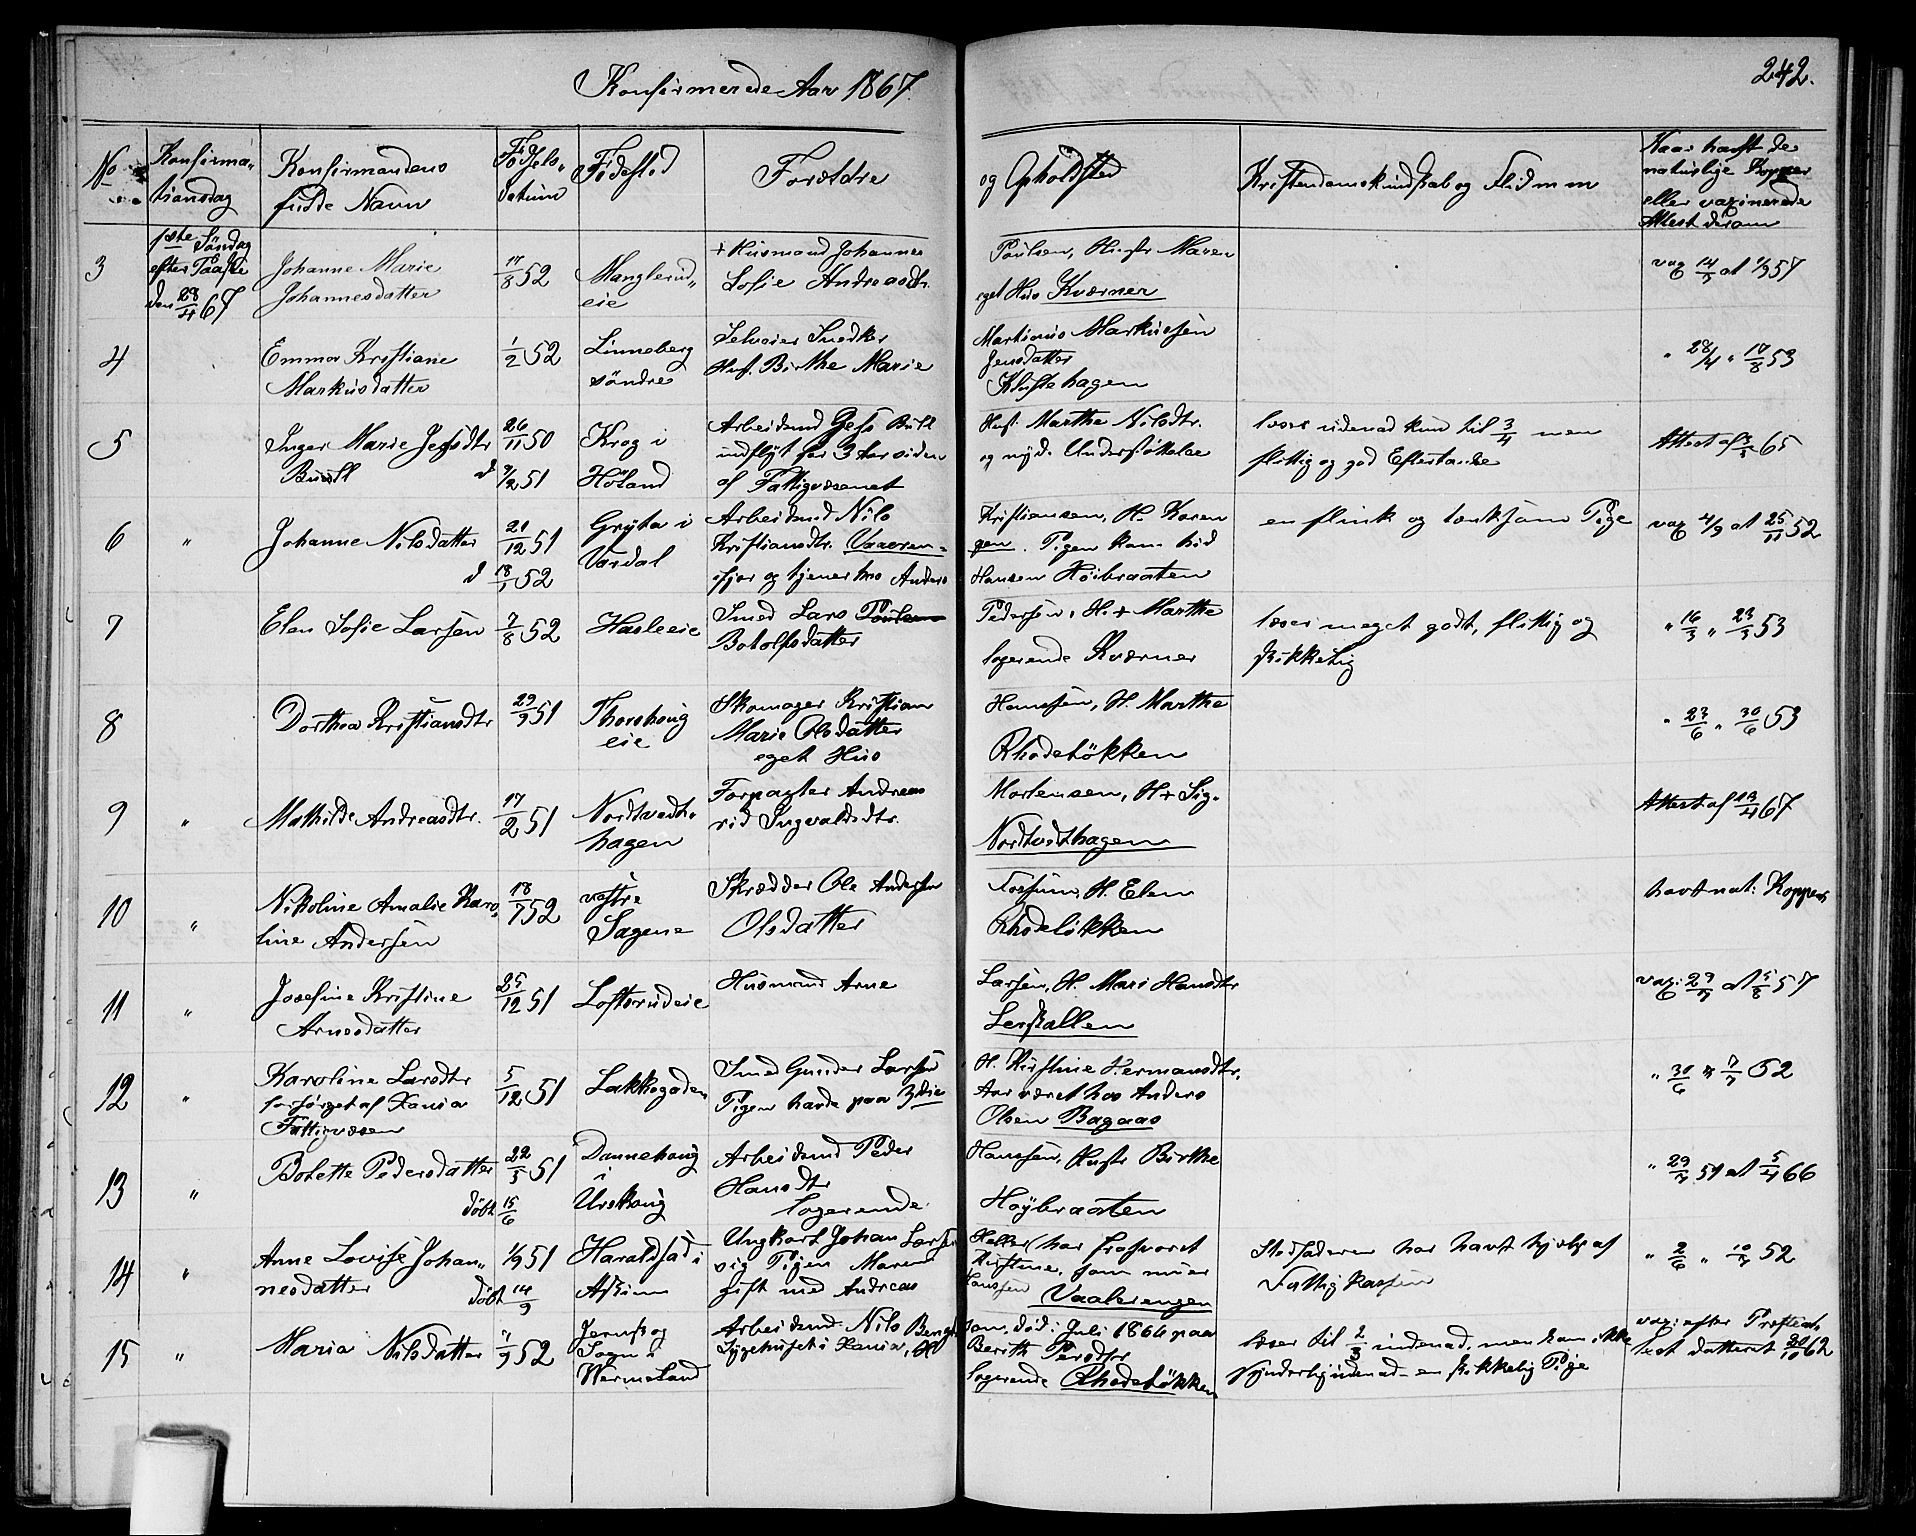 Konfirmerede Aar 1867.
242.
No
Konfirma-
tionsdag
Konfirmandens
fulde Navn
Födsels-
datum
Födested
Forældre
og Opholdsted
Kristendomskundskab og Flid m m
Naar havt de
naturlige Kopper
eller vaxinerede
Attest derom
3
1ste Söndag
efter Paaske
den 28/4 67
Johanne Marie
Johannesdatter
17/8 52
Manglerud-
eie
+ Husmand Johannes
Sofie Andreasdtr.
Poulsen, Hustr Maren
eget Hus Kværner
vax 14/7 at 1/9 57
4
Emma Kristiane
Markusdatter
1/2 52
Linneberg
söndre
Selveier Snedker
Hus. Birthe Marie
Martinus Markussen
Jensdatter
Klustehagen
" 28/4 " 17/8 53
5
Inger Marie Jensdtr
Buull
26/11 50
d 9/2 51
Krog i
Höland
Arbeidsmd Jens Bull
indflyt for 3 Aar siden
af Fattigvæsenet
Hus. Marthe Nilsdtr.
og nyd. Understöttelse
læser udenad kun til 3/4 men
flittig og god Eftertanke
Attest af 65
6
"
Johanne Nilsdatter
21/12 51
d 18/1 52
Gryta i
Vardal
Arbeidsmd Nils
Kristiansdtr. Vaaeren-
ifjor og tjener hos Anders
Kristiansen, H. Karen
gen. Pigen kom hid
Hansen Höibraaten
en flink og tænksom Pige
vax 4/9 at 25/11 52
7
"
Elen Sofie Larsen
7/8 52
Hasleeie
Smed Lars
Botolfsdatter
Pedersen, H. + Marthe
logerende Kværner
læser meget godt, flittig og
skikkelig
" 16/3 " 23/3 53
8
Dorthea Kristiansdtr
29/9 51
Thorshoug
eie
Skomager Kristian
Marie Olsdatter
eget Hus
Hanssen, H. Marthe
Rhodelökken
" 23/6 " 30/6 53
9
"
Mathilde Andreasdtr.
17/2 51
Nordtvedt-
hagen
Forpagter Andreas
rid Ingvaldsdtr.
Mortensen, H + Sig-
Nordtvedthagen
Attest af 13/4 67
10
"
Nikoline Amalie Karo-
line Andersen
18/7 52
vestre
Sagene
Skrædder Ole Andersen
Olsdatter
Fossum, H. Elen
Rhodelökken
havt nat: Kopper
11
"
Josefine Kristine
Arnesdatter
25/12 51
Loftsrudeie
Husmand Arne
Larsen, H. Mari Hansdtr
Lerskallen
vax: 29/7 at 5/8 57
12
"
Karoline Larsdtr
forsörget af Xania
Fattigvæsen
5/12 51
Lakkegaden
Smed Gunder Larsen
Pigen havde paa 3die
H. Kirstine Hermansdtr.
Aar været hos Anders
Olsen Bagaas
" 30/6 " 7/7 62
13
"
Bolette Pedersdatter
22/5 51
döbt 15/6
Dannehoug
i
Urskoug
Arbeidsmd Peder
Hansdtr
logerende
Hanssen, Hustr Birthe
Höybraaten
" 29/3 51 at 5/4 66
14
"
Anne Lovise Johan-
nesdatter
1/9 51
döbt 14/9
Haraldstad i
Askim
Ungkarl Johan Larsen
og Pigen Maren
gift med Andreas
Haller (har frasvoret
Kirstine, som nu er
Hanssen Vaalerengen
Stedfaderen har havt hjelp af
Fattigkassen
" 2/6 " 10/7 52
15
"
Maria Nilsdatter
7/9 52
Jernskog
Sogn i
Wermeland
Arbeidsmd. Nils Bengt-
Sygehuset i Xania, H.
son, död i Juli 1866 paa
Berith Persdtr
logerende Rhodelökken
læser til 2/3 indenad, men kan ikke
synderlig udenad - en skikkelig Pige
vax: efter Præsteat-
test dateret 30/10 62